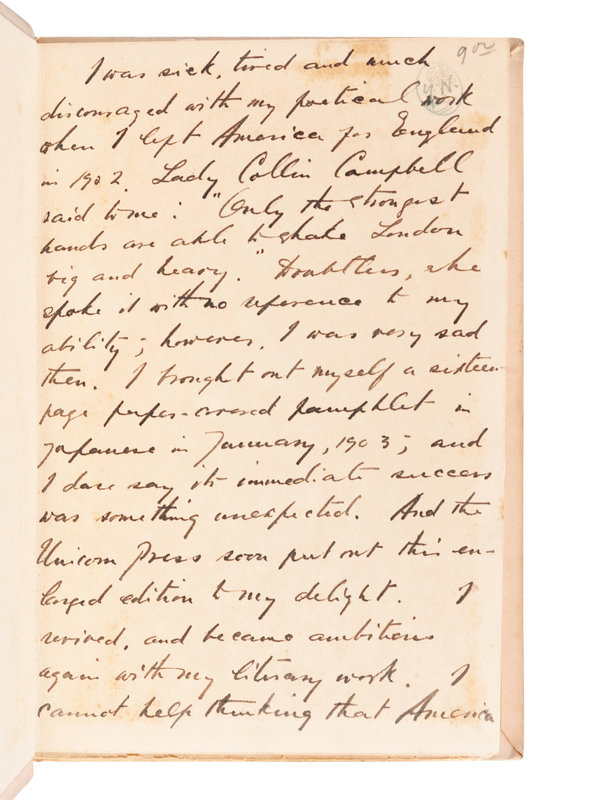 9 00
Y. N.
I was sick, tired and much
discouraged with my poetical work
when I left America for England
in 1902. Lady Collin Campbell
said to me: "Only the strongest
hands are able to shake London
big and heavy." Doubtless, she
spoke it with no reference to my
ability; however, I was very sad
then. I brought out myself a sixteen-
page paper-covered pamphlet in
Japanese in January, 1903; and
I dare say its immediate success
was something unexpected. And the
Unicorn Press soon put out this en-
larged edition to my delight. I
revived, and became ambitious
again with my literary work. I
cannot help thinking that America